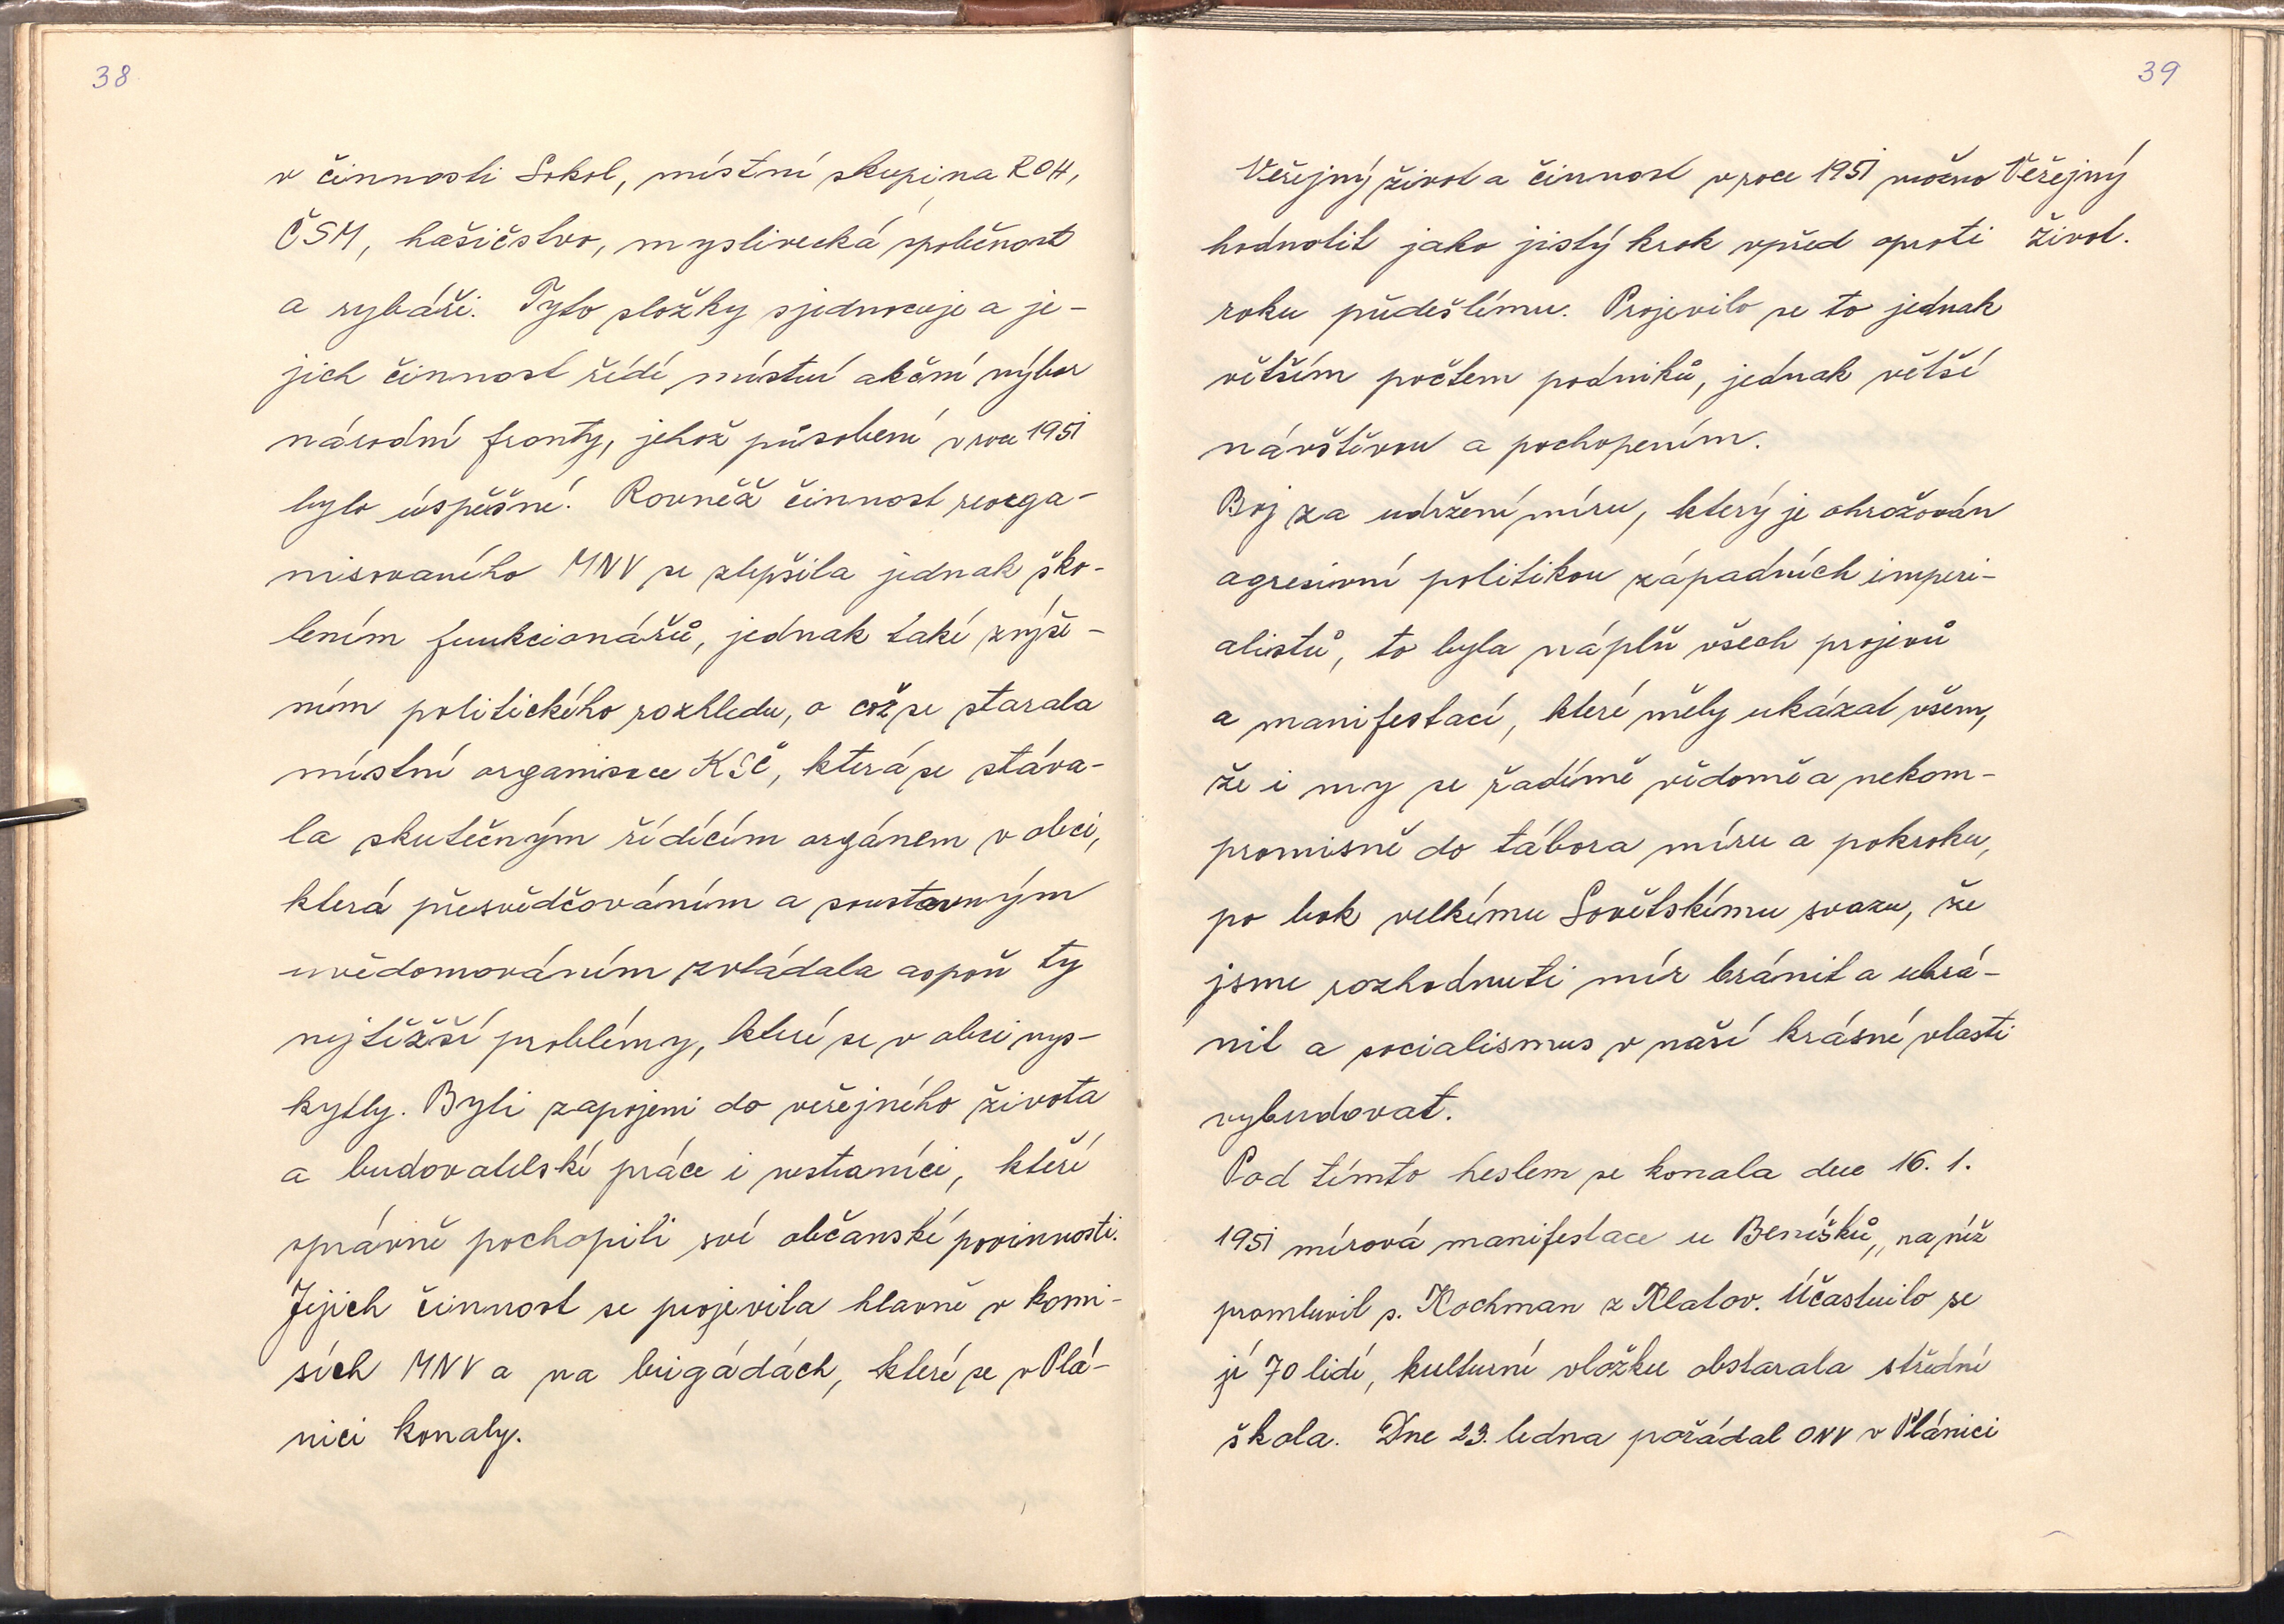 38
v činnosti Sokol, místní skupina ROH,
ČSM, hašičstvo, myslivecká společnost
a rybáři. Tyto složky sjednocuje a je-
jich činnost řídí místní akční výbor
národní fronty, jehož působení v roce 1951
bylo úspěšné. Rovněž činnost reorga-
nisovaného MNV se zlepšila jednak ško-
lením funkcionářů, jednak také zvýše-
ním politického rozhledu, o což se starala
místní organisace KSČ, která se stáva-
la skutečným řídícím orgánem v obci,
která přesvědčováním a soustavným
uvědomováním zvládala aspoň ty
nejtěžší problémy, které se v obci vys-
kytly. Byli zapojeni do veřejného života
a budovatelské práce i nestraníci, kteří
správně pochopili své občanské povinnosti.
Jejich činnost se projevila hlavně v komi-
sích MNV a na brigádách, které se v Plá-
nici konaly.
39
Veřejný život a činnost v roce 1951 možno
hodnotit jako jistý krok vpřed oproti
roku předešlému. Projevilo se to jednak
větším počtem podniků, jednak větší
návštěvou a pochopením.
Veřejný
život.
Boj za udržení míru, který je ohrožován
agresivní politikou západních imperi-
alistů, to byla náplň všech projevů
a manifestací, které měly ukázat všem,
že i my se řadímě vědomě a nekom-
promisně do tábora míru a pokroku,
po bok velkému Sovětskému svazu, že
jsme rozhodnuti mír bránit a ubrá-
nit a socialismus v naší krásné vlasti
vybudovat.
Pod tímto heslem se konala dne 16. 1.
1951 mírová manifestace u Beníšků,, na níž
promluvil s. Kochman z Klatov. Účastnilo se
jí 70 lidí, kulturní vložku obstarala střední
škola. Dne 23. ledna pořádal ONV v Plánici